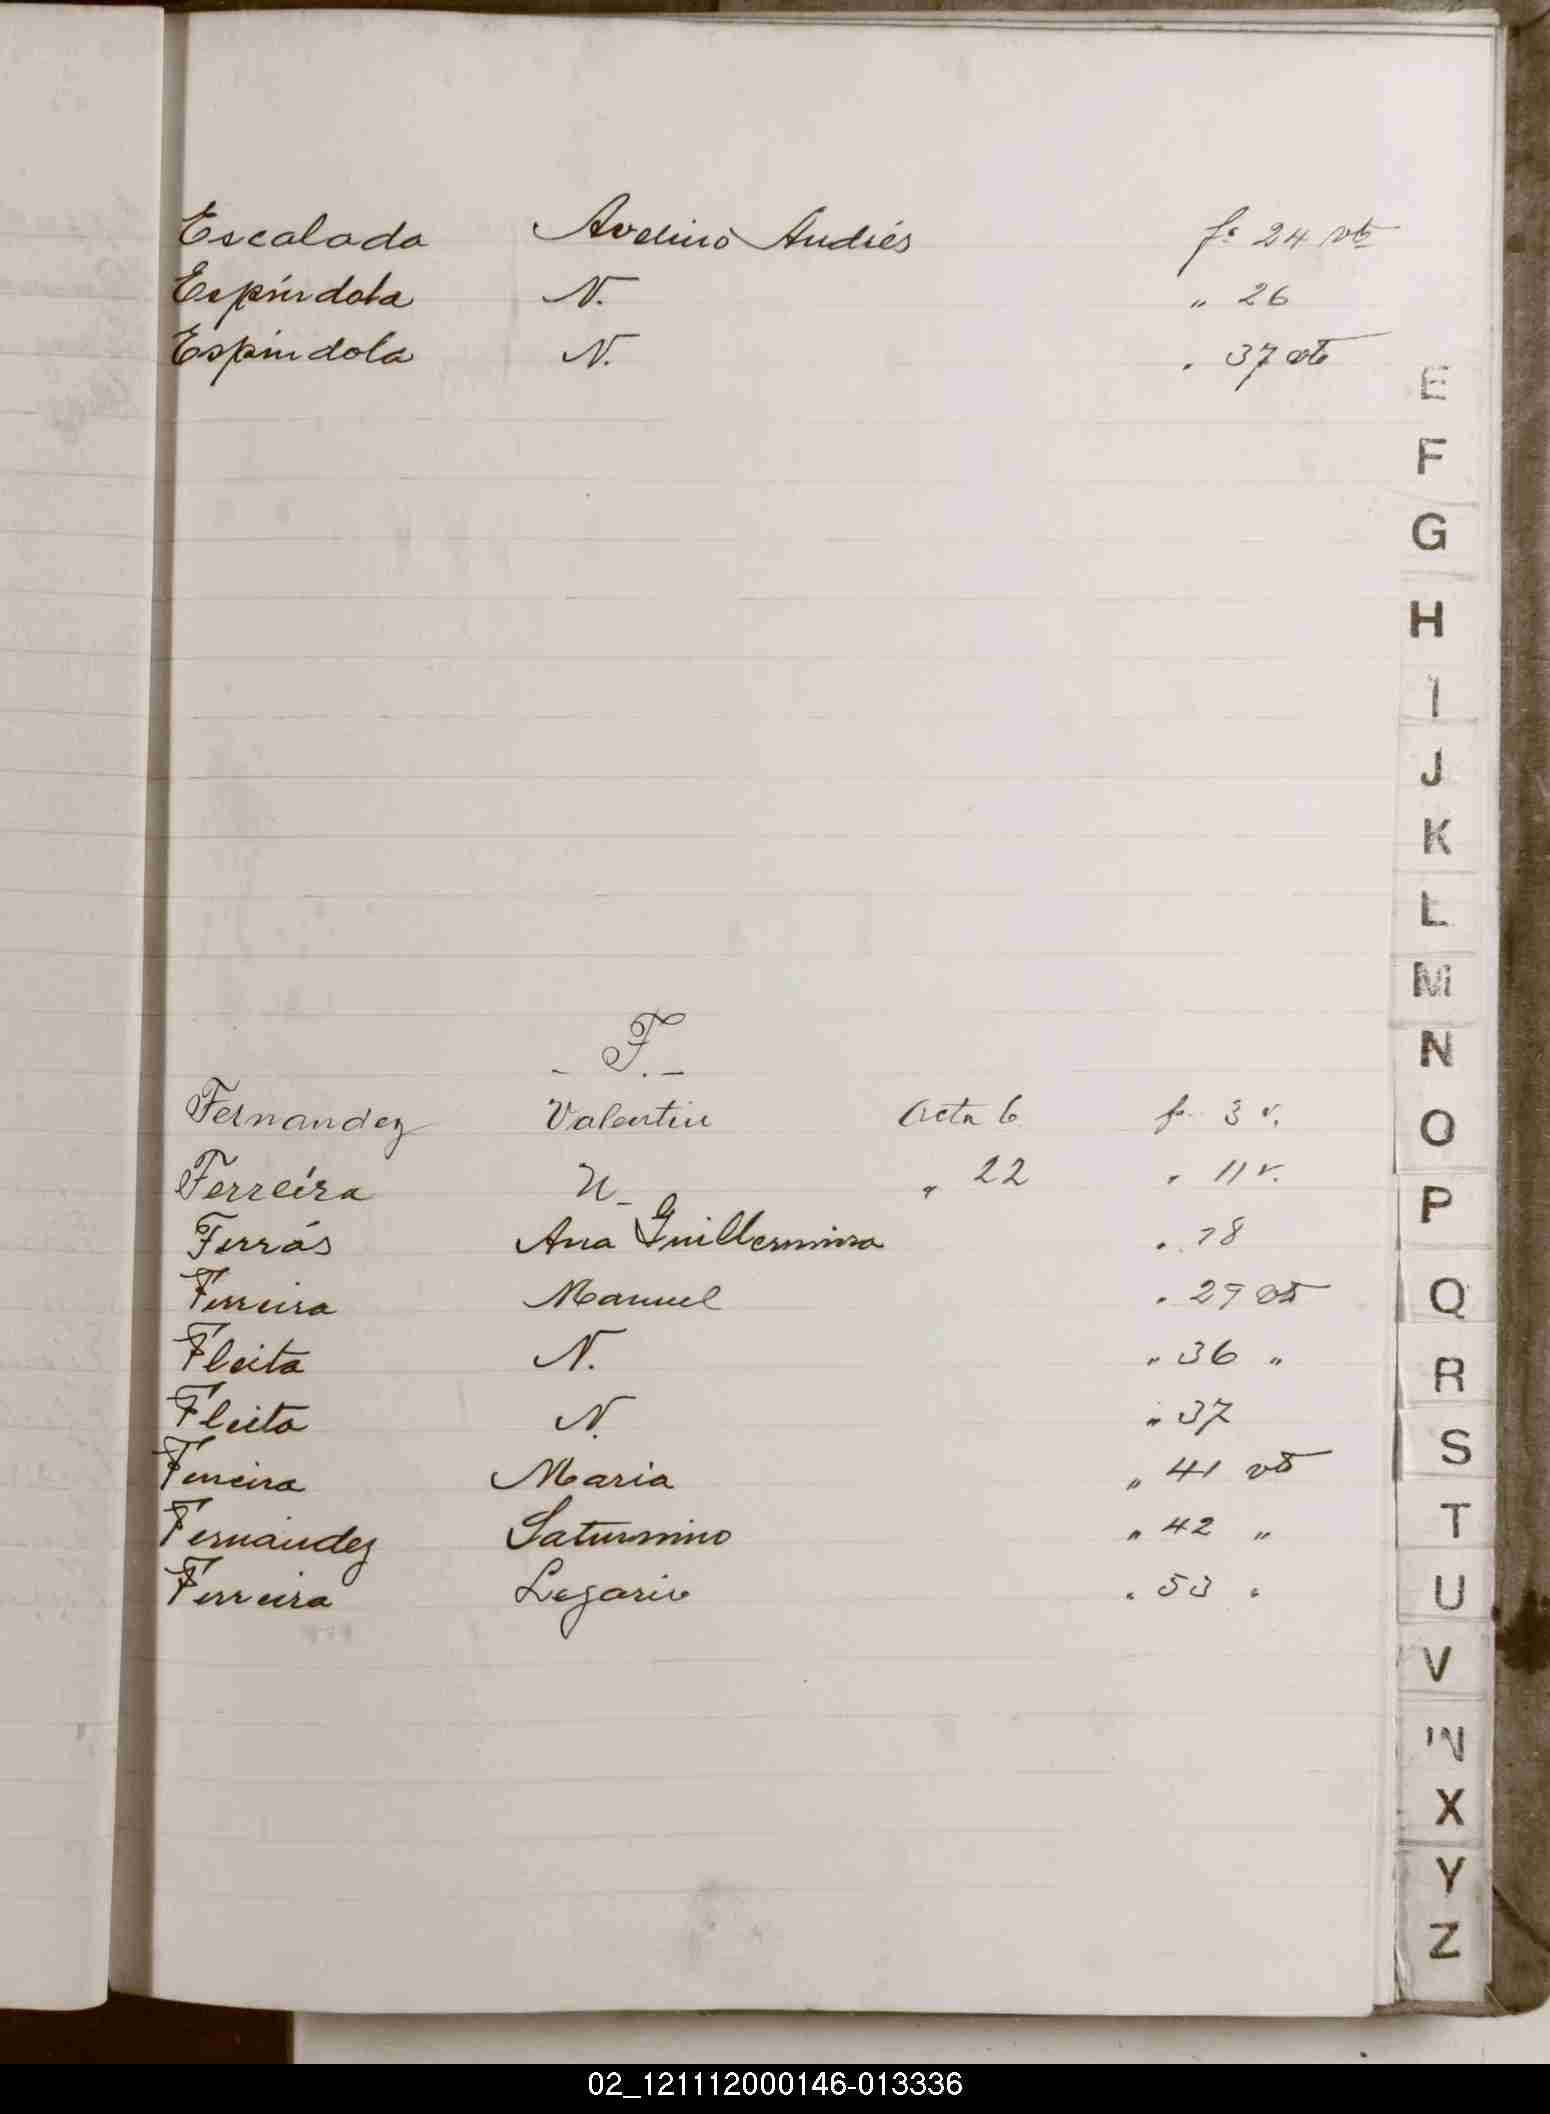 Escalada Avelino Andrés fs 24 vto
Espíndola N. " 26
Espíndola N. " 37 vto
- F. -
Fernandez Valentin Acta 6 fs. 3 v.
Ferreira N- " 22 " 11 v.
Ferrás Ana Guillermina " 18
Ferreira Manuel " 29 vto
Fleita N. " 36 "
Fleita N. " 37
Ferreira Maria " 41 vto
Fernández Saturnino " 42 "
Ferreira Legario " 53 "
E
F
G
H
I
J
K
L
M
N
O
P
Q
R
S
T
U
V
W
X
Y
Z
02_121112000146-013336